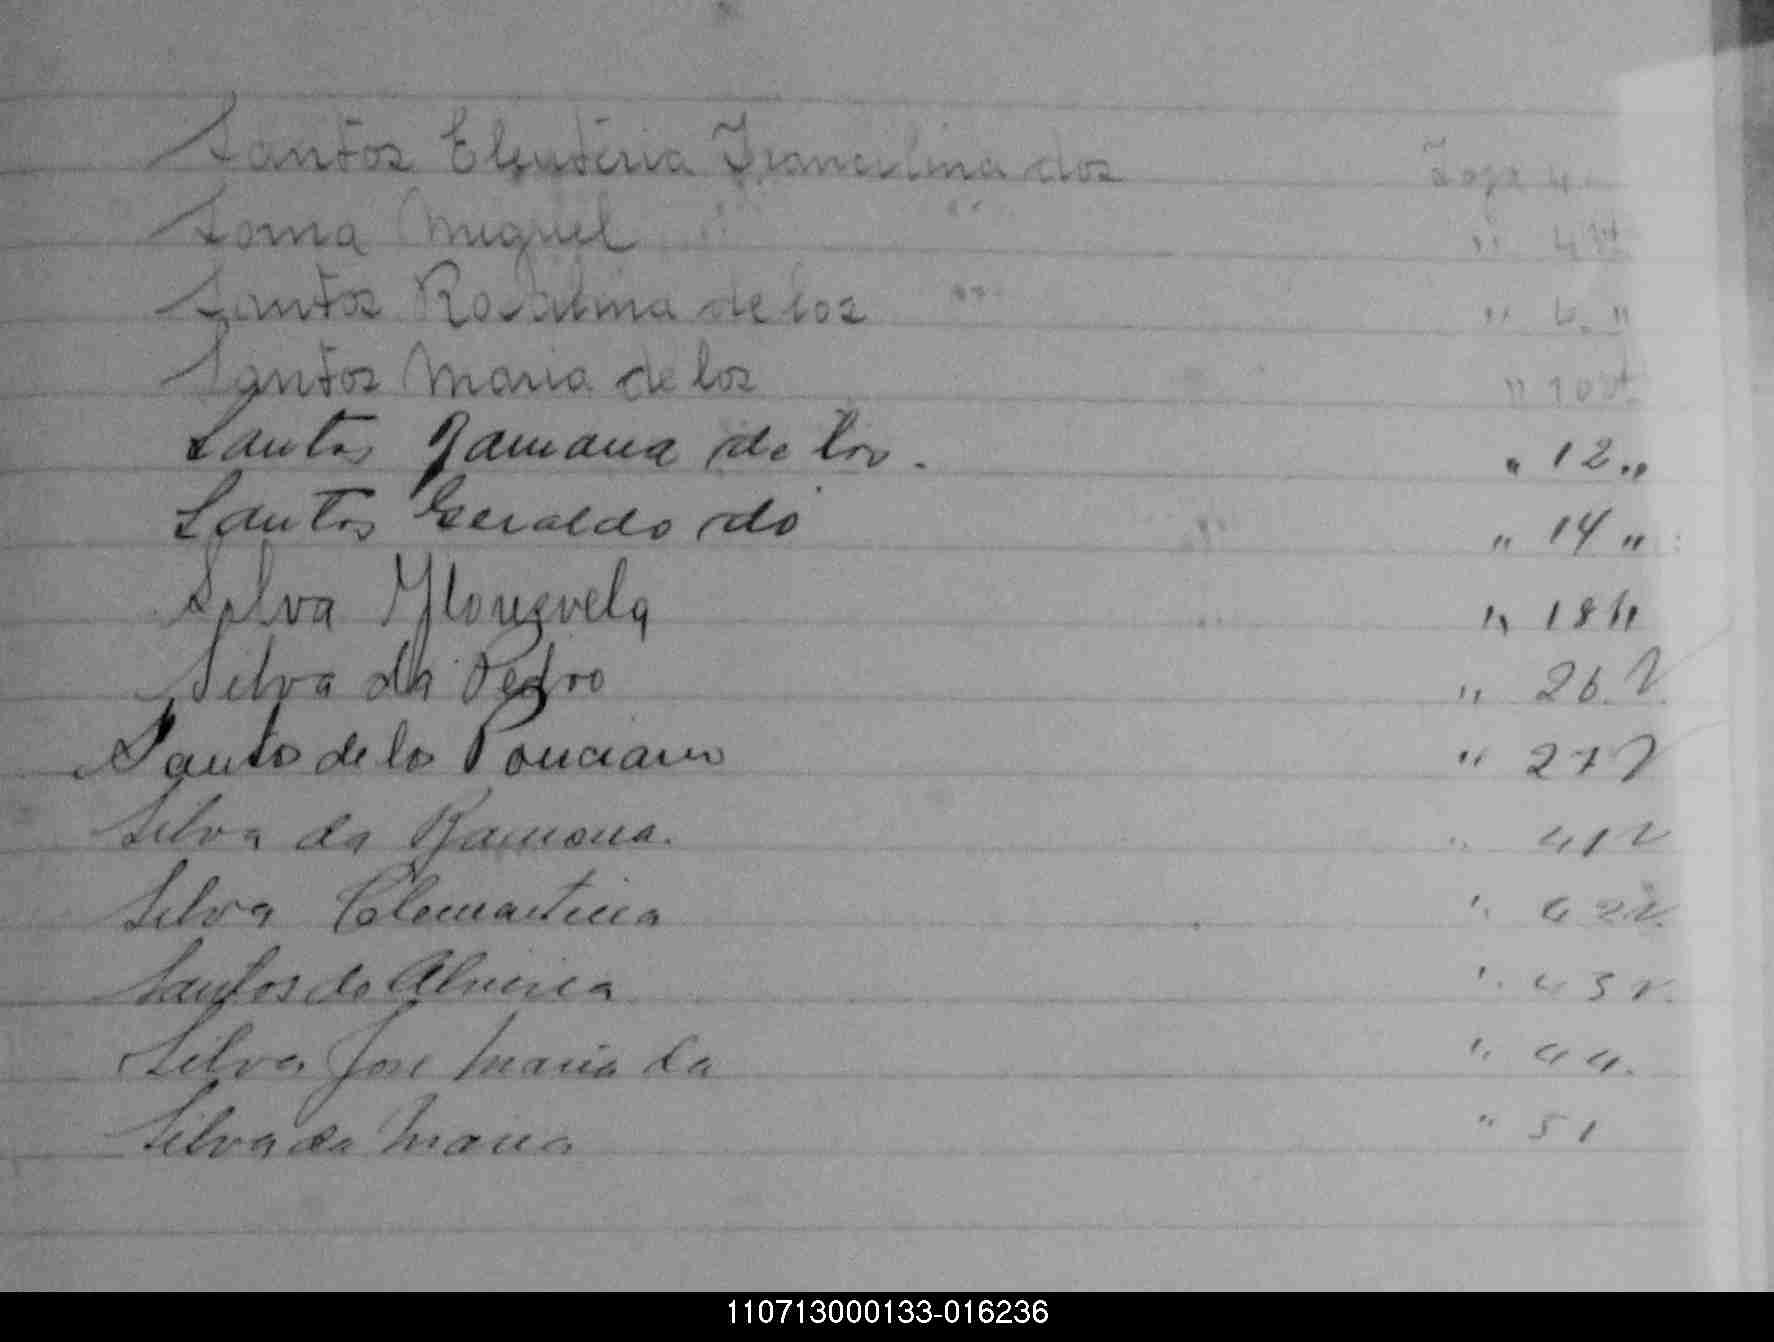 Santos Eleuteria Francelina dos Foja 4
Soma Miguel " 4 vt
Santos Rosalina de los " 6. "
Santos Maria de los " 10 vt
Santos Ramana de los. " 12 "
Santos Geraldo do " 14 "
Silva " 18 "
Silva da Pedro " 26 V
Santo de los Ponciano " 27 V
Silva da Ramona. " 41 V
Silva Clemantina " 42 V.
Santos do " 43 V.
Silva Jose Maria da " 44.
Silva da Maria " 51
110713000133-016236